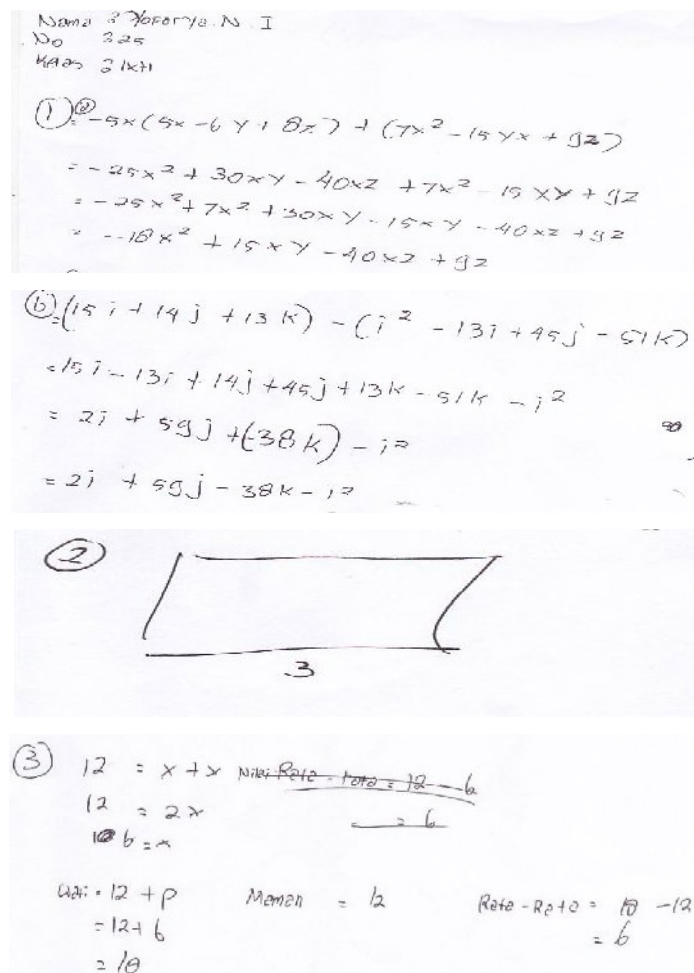 Nama : Yoforya. N. I
No 325
Kelas : IX H
① ⓐ = -5x(5x - 6y + 8z) + (7x² - 15yx + 9z)
= -25x² + 30xy - 40xz + 7x² - 15xy + 9z
= -25x² + 7x² + 30xy - 15xy - 40xz + 9z
= -18x² + 15xy - 40xz + 9z
ⓑ = (15i + 14j + 13k) - (i² - 13i + 45j - 51k)
= 15i - 13i + 14j + 45j + 13k - 51k - i²
= 2i + 59j + (-38k) - i²
= 2i + 59j - 38k - i²
②
3
③ 12 = x + x Nilai Rata - rata = 12 - 6
12 = 2x = 6
6 = x
= 12 + p Maman = 12 Rata - Rata = 18 - 12
= 12 + 6 = 6
= 18